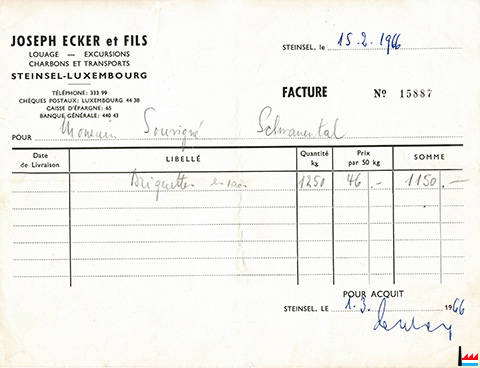 JOSEPH ECKER et FILS
LOUAGE — EXCURSIONS
CHARBONS ET TRANSPORTS
STEINSEL-LUXEMBOURG
TÉLÉPHONE: 333 99
CHÈQUES POSTAUX: LUXEMBOURG 44 38
CAISSE D'ÉPARGNE: 65
BANQUE GÉNÉRALE: 440 43
STEINSEL, le 15.2.1966
FACTURE No 15887
POUR Monsieur Souvigné
Date de Livraison LIBELLÉ Quantité kg Prix par 50 kg SOMME
Briquettes en vrac 1250 46.- 1150.-
POUR ACQUIT
STEINSEL, LE 1.3. 1966